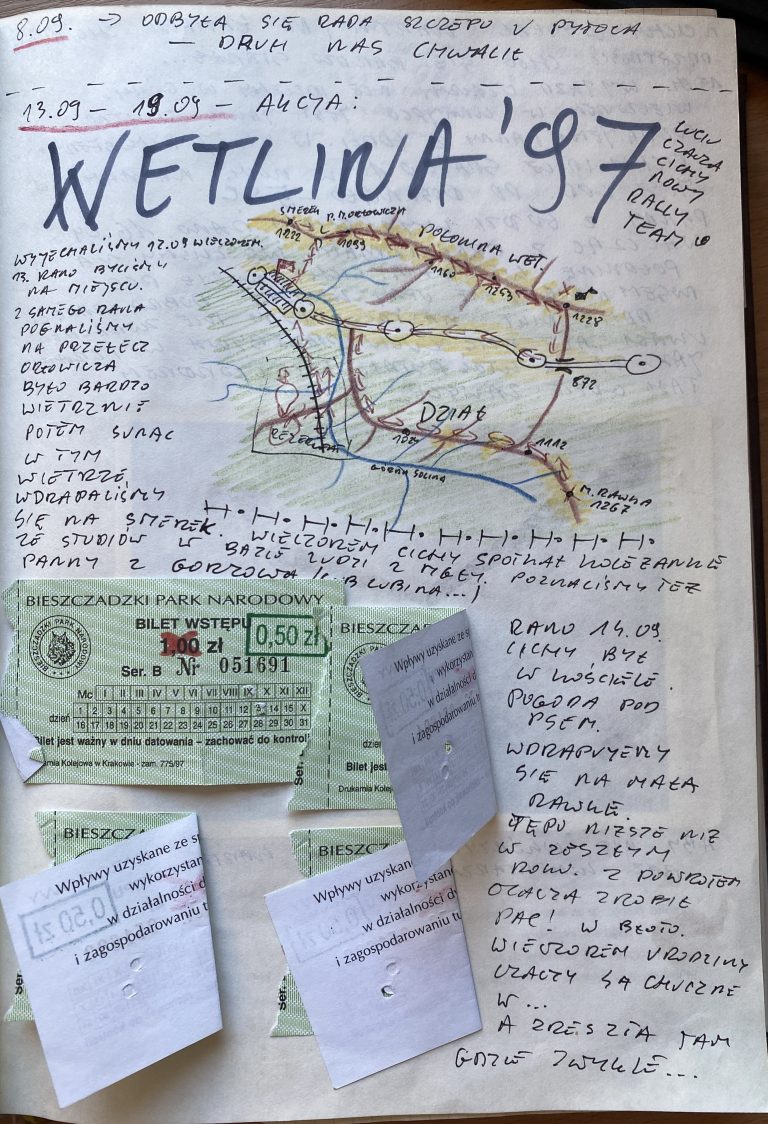 8.09. → ODBYŁA SIĘ RADA SZCZEPU V PYTOCA
— DRUH NAS CHWALIŁ
13.09 – 19.09 – AKCJA:
WETLINA '97
CZACZA
CICHY
NOWY
RALLY
TEAM
WYJECHALIŚMY 12.09 WIECZOREM.
13. RANO BYLIŚMY
NA MIEJSCU.
Z SAMEGO RANA
POGNALIŚMY
NA PRZEŁĘCZ
ORŁOWICZA
BYŁO BARDZO
WIETRZNIE
POTEM SUNĄC
W TYM
WIETRZE
WDRAPALIŚMY
SIĘ NA SMEREK. WIECZOREM CICHY SPOTKAŁ KOLEŻANKĘ
ZE STUDIÓW W BAZIE LUDZI Z MGŁY. POZNALIŚMY TEŻ
PANNY Z GORZOWA (LUB LUBINA...)
SMEREK
1222
P. M. ORŁOWICZA
1099
POŁONINA WET.
1160
1253
1228
872
DZIAŁ
1112
GÓRNA SOLINA
M. RAWKA
1267
BIESZCZADZKI PARK NARODOWY
BIESZCZADZKI PARK NARODOWY
BILET WSTĘPU
1,00 zł
0,50 zł
Ser. B Nr 051691
Mc I II III IV V VI VII VIII IX X XI XII
dzień 1 2 3 4 5 6 7 8 9 10 11 12 13 14 15
16 17 18 19 20 21 22 23 24 25 26 27 28 29 30 31
Bilet jest ważny w dniu datowania – zachować do kontroli
Drukarnia Kolejowa w Krakowie - zam. 775/97
BIESZCZA
Ser.
dzień
Bilet jest
Drukarnia Kolej
Wpływy uzyskane ze
wykorzystan
w działalności d
i zagospodarowaniu tu
BIESZCZA
Ser.
Wpływy uzyskane ze s
wykorzystan
0,50 zł
w działalności d
i zagospodarowaniu tu
BIESZCZA
Ser.
Wpływy uzyskan
wykorzystan
w działalności d
i zagospodarowaniu tu
RANO 14.09.
CICHY BYŁ
W KOŚCIELE.
POGODA POD
PSEM.
WDRAPUJEMY
SIĘ NA MAŁĄ
RAWKĘ.
TĘPO NIŻSZE NIŻ
W ZESZŁYM
ROKU. Z POWROTEM
CZACZA ZROBIŁ
PAC! W BŁOTO.
WIECZOREM URODZINY
CZACZY SĄ HUCZNE
W ...
A ZRESZTĄ TAM
GDZIE ZWYKLE...